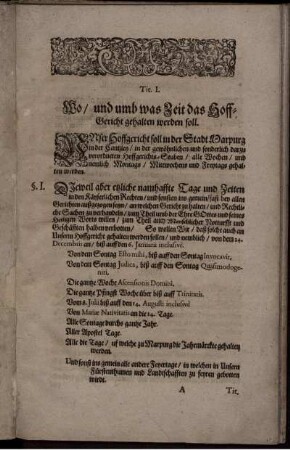 Tit. I.
Wo / und umb was Zeit das Hoff-
Gericht gehalten werden soll.
UNser Hoffgericht soll in der Stadt Marpurg
in der Cantzley / in der gewöhnlichen und sonderlich darzu
verordneten Hoffgerichts-Stuben / alle Wochen / und
nemlich Montags / Mittwochens und Freytags gehal-
ten werden.
§. I. DIeweil aber etzliche namhaffte Tage und Zeiten
in den Käyserlichen Rechten / und sonsten ins gemein / fast bey allen
Gerichten außgezogen seyn / an welchen Gericht zu halten / und Rechtli-
che Sachen zu verhandeln / zum Theil umb der Ehre GOttes und seines
Heiligen Worts willen / zum Theil auch Menschlicher Notturfft und
Geschäfften halben verbotten / So wollen Wir / daß solche auch an
Unserm Hoffgericht gehalten werden sollen / und nemblich / von dem 24.
Decembris an / biß auff den 6. Januarii inclusivè.
Von dem Sontag Estomihi, biß auff den Sontag Invocavit,
Von dem Sontag Judica, biß auff den Sontag Quasimodoge-
niti.
Die gantze Woche Ascensionis Domini.
Die gantze Pfingst Woche über biß auff Trinitatis.
Von 9. Julii biß auff den 14. Augusti inclusivè
Von Mariæ Nativitatis an die 14. Tage.
Alle Sontage durchs gantze Jahr.
Aller Apostel Tage.
Alle die Tage / uf welche zu Marpurg die Jahrmärckte gehalten
werden.
Und sonst ins gemein alle andere Feyertage / in welchen in Unsern
Fürstenthumen und Landschafften zu feyren gebotten
wird.
A Tit.